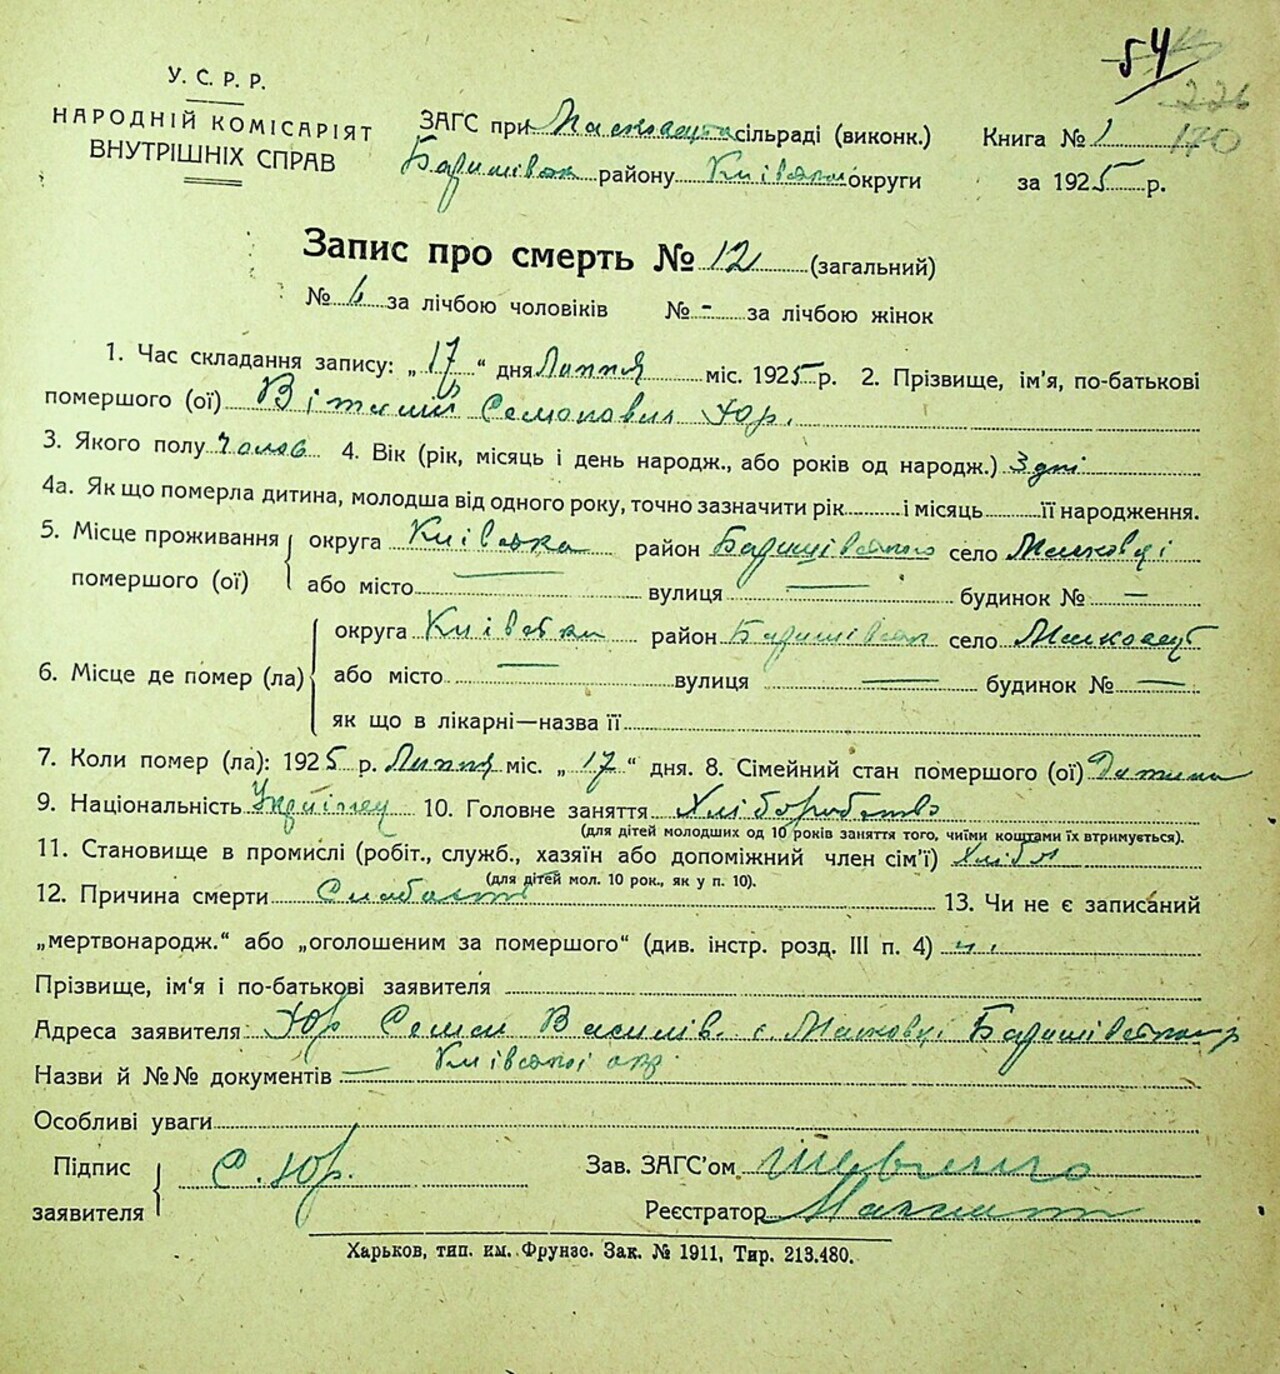 54
226
170
У. С. Р. Р.
НАРОДНІЙ КОМІСАРІЯТ
ВНУТРІШНІХ СПРАВ
ЗАГС при сільраді (виконк.)
Баришівськ району Київської округи
Книга № 1
за 1925 р.
Запис про смерть № 12 (загальний)
№ 6 за лічбою чоловіків № - за лічбою жінок
1. Час складання запису: „17“ дня Липня міс. 1925 р. 2. Прізвище, ім'я, по-батькові
помершого (ої) Віталій Семенович Юр.
3. Якого полу чолов 4. Вік (рік, місяць і день народж., або років од народж.) 3 дні
4а. Як що померла дитина, молодша від одного року, точно зазначити рік і місяць її народження.
5. Місце проживання помершого (ої) округа Київська район Баришівського село Масківці
або місто — вулиця — будинок № —
6. Місце де помер (ла) округа Київська район Баришівськ село
або місто — вулиця — будинок № —
як що в лікарні—назва її
7. Коли помер (ла): 1925 р. Липня міс. „17“ дня. 8. Сімейний стан помершого (ої) Дитина
9. Національність Українец 10. Головне заняття Хліборобство
(для дітей молодших од 10 років заняття того, чиїми коштами їх втримується).
11. Становище в промислі (робіт., служб., хазяїн або допоміжний член сім'ї)
(для дітей мол. 10 рок., як у п. 10).
12. Причина смерти Слабость 13. Чи не є записаний
„мертвонародж.“ або „оголошеним за помершого“ (див. інстр. розд. III п. 4) ні
Прізвище, ім'я і по-батькові заявителя
Адреса заявителя Юр Семен Василів. с. Масківці Баришівського р
Київської окр.
Назви й №№ документів —
Особливі уваги
Підпис заявителя С. Юр.
Зав. ЗАГС'ом Шевченко
Реєстратор
Харьков, тип. им. Фрунзе. Зак. № 1911, Тир. 213.480.